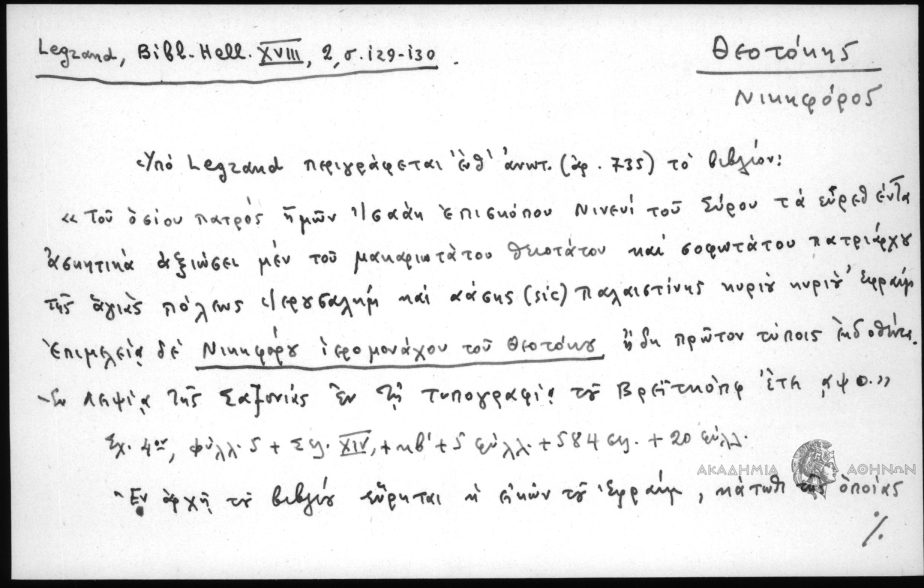 Legrand, Bibl. Hell. XVIII, 2, σ. 129-130.
Θεοτόκης
Νικηφόρος
Ὑπό Legrand περιγράφεται ἐνθ' ἀνωτ. (ἀρ. 735) τὸ βιβλίον:
«Τοῦ ὁσίου πατρός ἡμῶν Ἰσαὰκ ἐπισκόπου Νινευΐ τοῦ Σύρου τά εὑρεθέντα
ἀσκητικά ἀξιώσει μέν τοῦ μακαριωτάτου θειοτάτου καί σοφωτάτου πατριάρχου
τῆς ἁγίας πόλεως Ἰερουσαλήμ καί πάσης (sic) Παλαιστίνης κυρίου κυρίου Ἐφραίμ
ἐπιμελείᾳ δέ Νικηφόρου ἱερομονάχου τοῦ Θεοτόκου ἤδη πρῶτον τύποις ἐκδοθέντα.
- Ἐν Λειψίᾳ τῆς Σαξονίας ἐν τῇ τυπογραφίᾳ τοῦ Βρεϊτκόπφ ἔτει ͵αψο.»
Σχ. 4ον, φύλλ. 5 + σελ. XIV, + κβ' + 5 φύλλ. + 584 σελ. + 20 φύλλ.
ΑΚΑΔΗΜΙΑ ΑΘΗΝΩΝ
Ἐν ἀρχῇ τοῦ βιβλίου εὕρηται ἡ εἰκών τοῦ Ἐφραίμ, κάτωθι τῆς ὁποίας
%